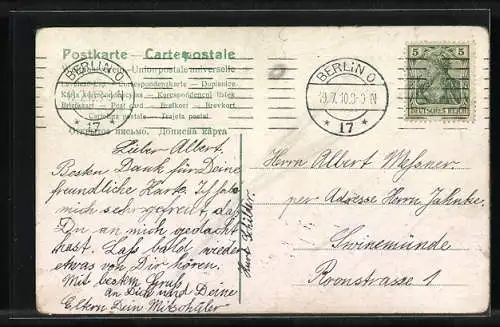 Postkarte - Carte postale
Weltpostverein - Union postale universelle
Levelező-Lap - Correspondenzkarte - Dopisnice
Karta korespondencyjna - Korespondenční lístek
Briefkaart - Post card - Brefkort - Brevkort
Cartolina postale - Tarjeta postal
Открытое письмо. Дописна карта
BERLIN O.
* 17 *
BERLIN O.
19.7.10.8-9 N
* 17 *
5 5
DEUTSCHES REICH
Lieber Albert.
Besten Dank für Deine
freundliche Karte. Ich habe
mich sehr gefreut, daß
Du an mich gedacht
hast. Laß bald wieder
etwas von Dir hören.
Mit bestem Gruß
an Dich und Deine
Eltern Dein Mitschüler
Kurt
Herrn Albert Messner
per Adresse Herrn Jahnke.
Swinemünde
Roonstrasse 1